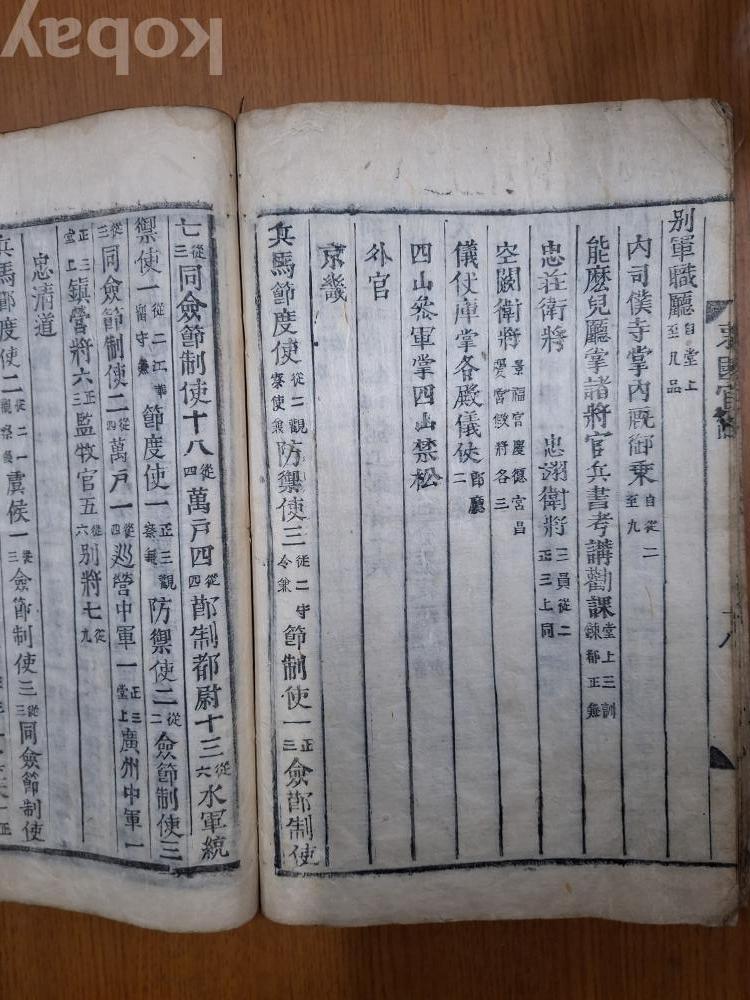 kobay
別軍職廳 自堂上至九品
內司僕寺掌內厩御乘 自從二至九
能麽兒廳掌諸將官兵書考講勸課 堂上三訓鍊都正兼
忠莊衛將 忠翊衛將 三員從二正三上同
空闕衛將 景福宮慶德宮昌慶宮假將各三
儀仗庫掌各殿儀仗 郎廳二
四山參軍掌四山禁松
外官
京畿
兵馬節度使 從二觀察使兼 防禦使三 從二守令兼 節制使一 正三 僉節制使
七 從三 同僉節制使十八 從四 萬戶四 從四 節制都尉十三 從六 水軍統
禦使一 從二江華留守兼 節度使一 正三觀察兼 防禦使二 從二 僉節制使三
從三 同僉節制使二 從四 萬戶一 從四 巡營中軍一 正三堂上 廣州中軍一
正三堂上 鎭營將六 正三 監牧官五 從六 別將七 從九
忠清道
兵馬節度使二 從二一觀察兼 虞候一 從三 僉節制使三 從三 同僉節制使